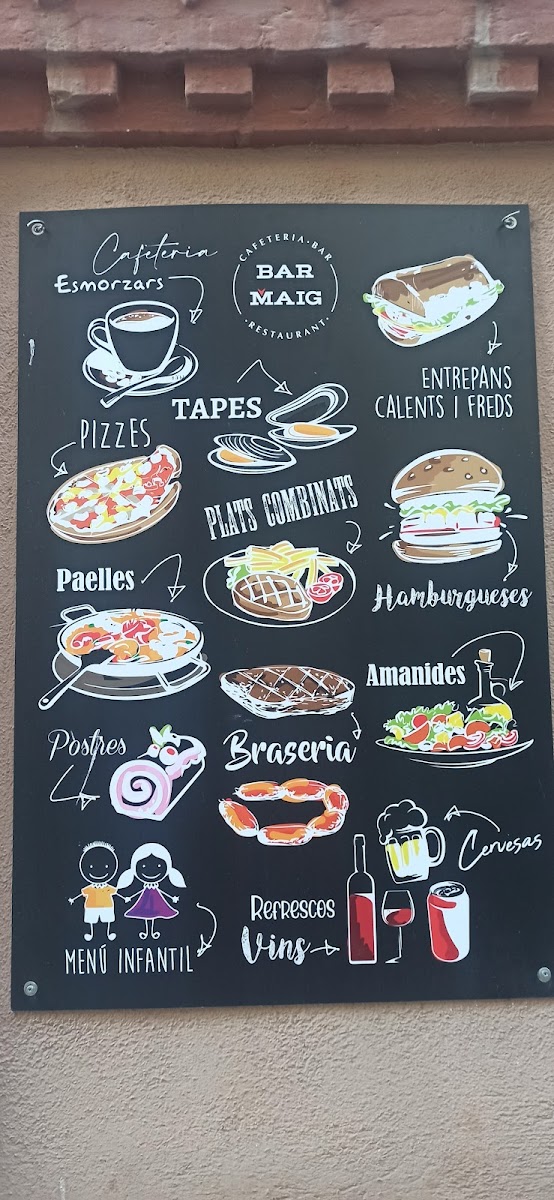 Cafeteria
Esmorzars
CAFETERIA·BAR
BAR
MAIG
·RESTAURANT·
ENTREPANS
CALENTS I FREDS
TAPES
PIZZES
PLATS COMBINATS
Paelles
Hamburgueses
Amanides
Postres
Braseria
Cervesas
Refrescos
Vins
MENÚ INFANTIL